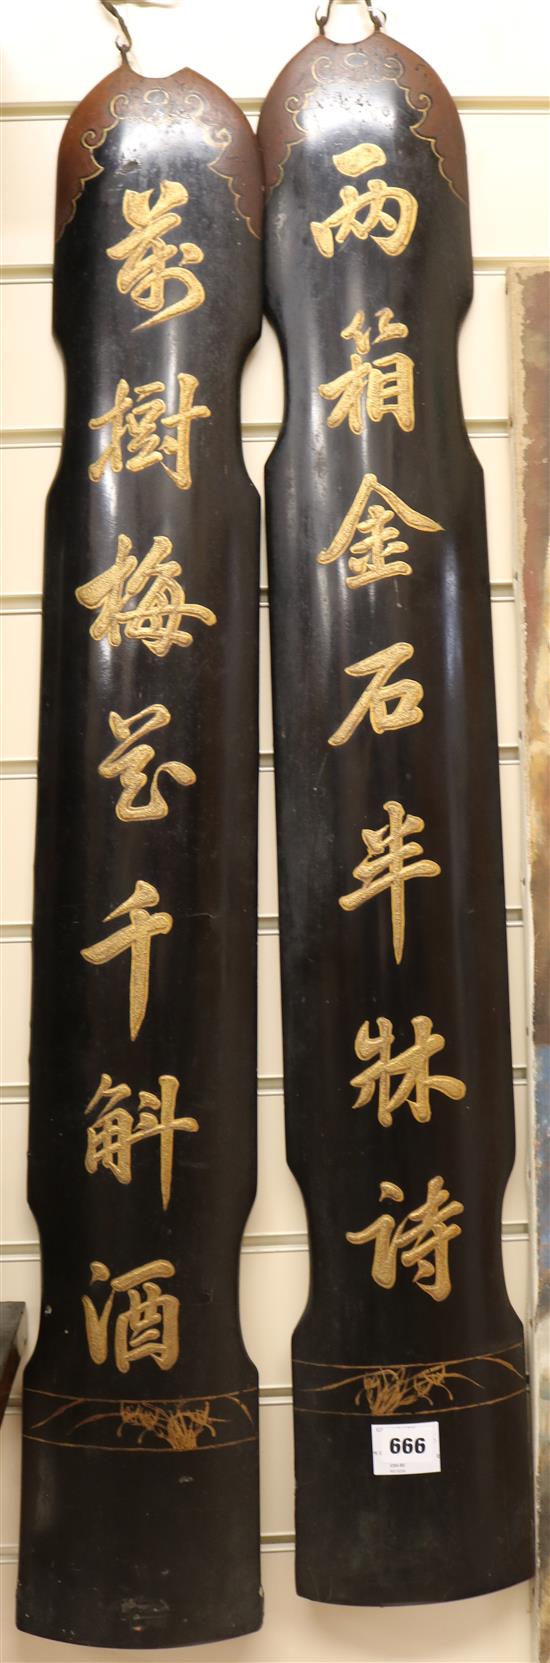 兩箱金石半牀詩
萬樹梅花千斛酒
666